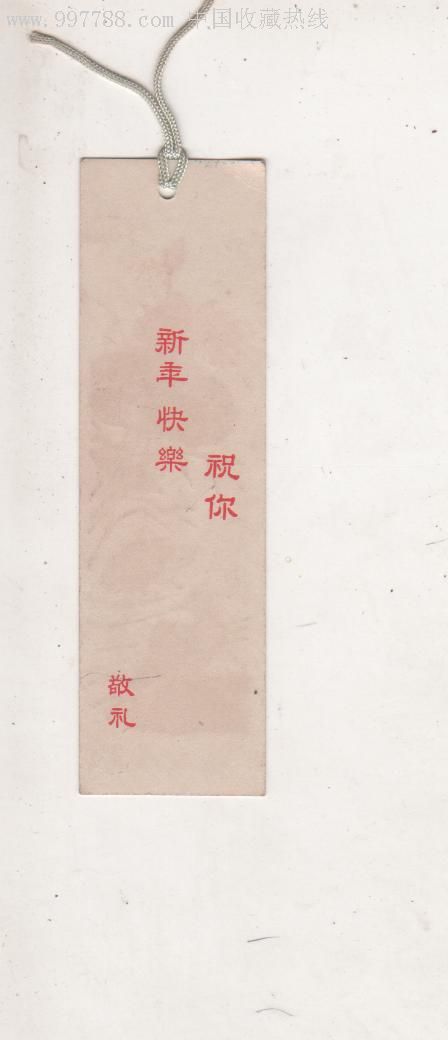 www.997788.com 中国收藏热线
祝你
新年快樂
敬礼